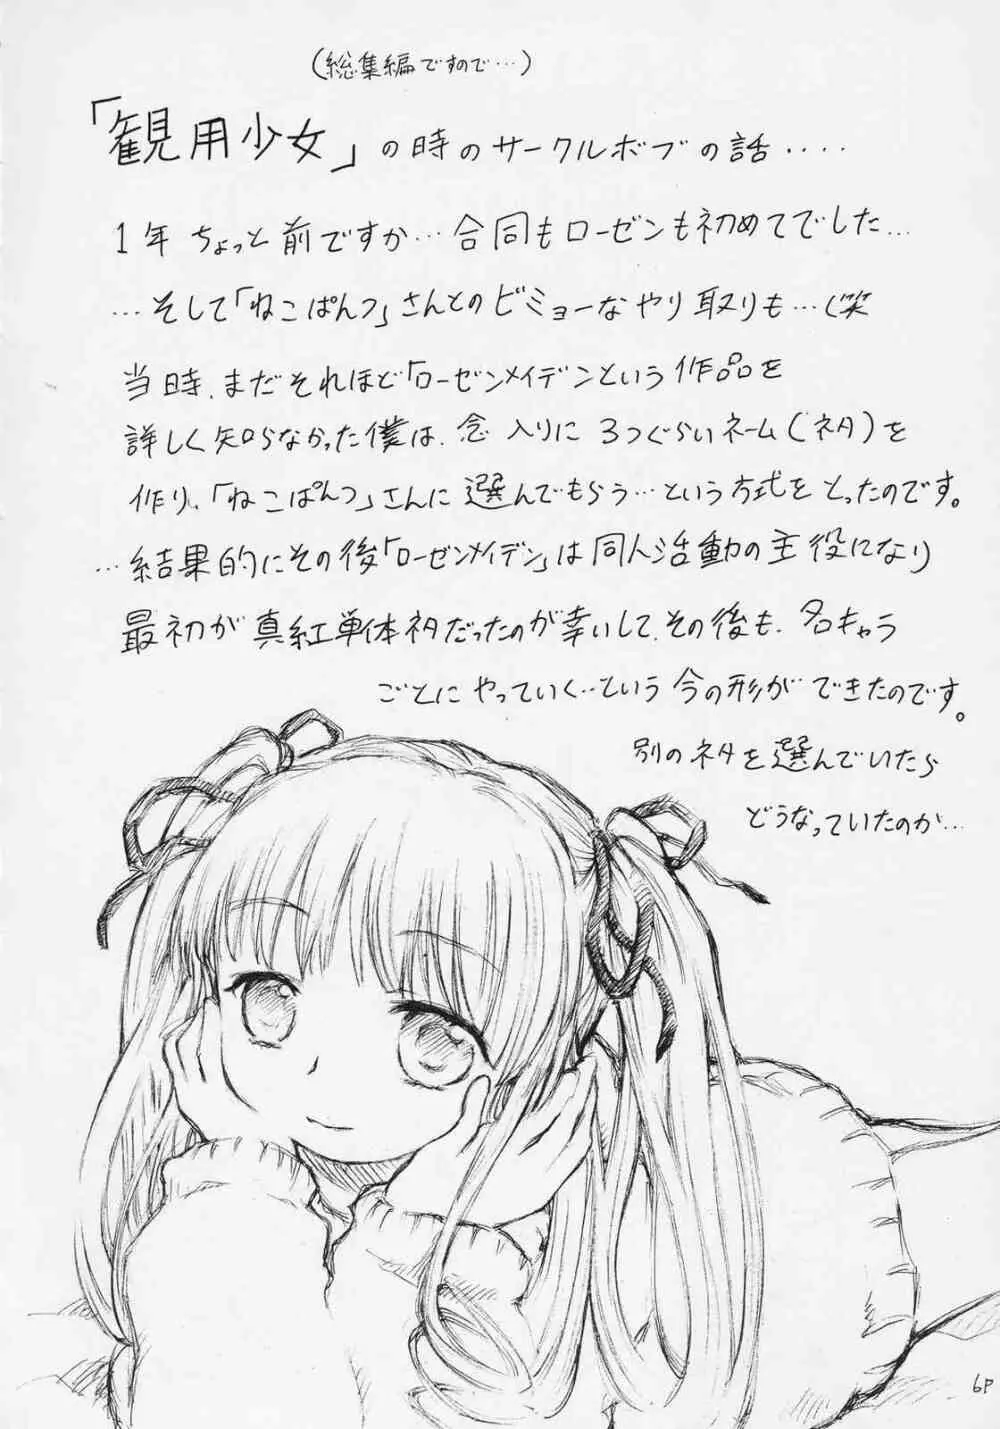 (総集編ですので…)
「観用少女」の時のサークルボブの話‥‥
1年ちょっと前ですか…合同もローゼンも初めてでした…
…そして「ねこぱんつ」さんとのビミョーなやり取りも…(笑
当時、まだそれほど「ローゼンメイデンという作品を
詳しく知らなかった僕は、念入りに3つぐらいネーム(ネタ)を
作り、「ねこぱんつ」さんに選んでもらう…という方式をとったのです。
…結果的にその後「ローゼンメイデン」は同人活動の主役になり
最初が真紅単体ネタだったのが幸いして、その後も、各キャラ
ごとにやっていく…という今の形ができたのです。
別のネタを選んでいたら
どうなっていたのか…
6P